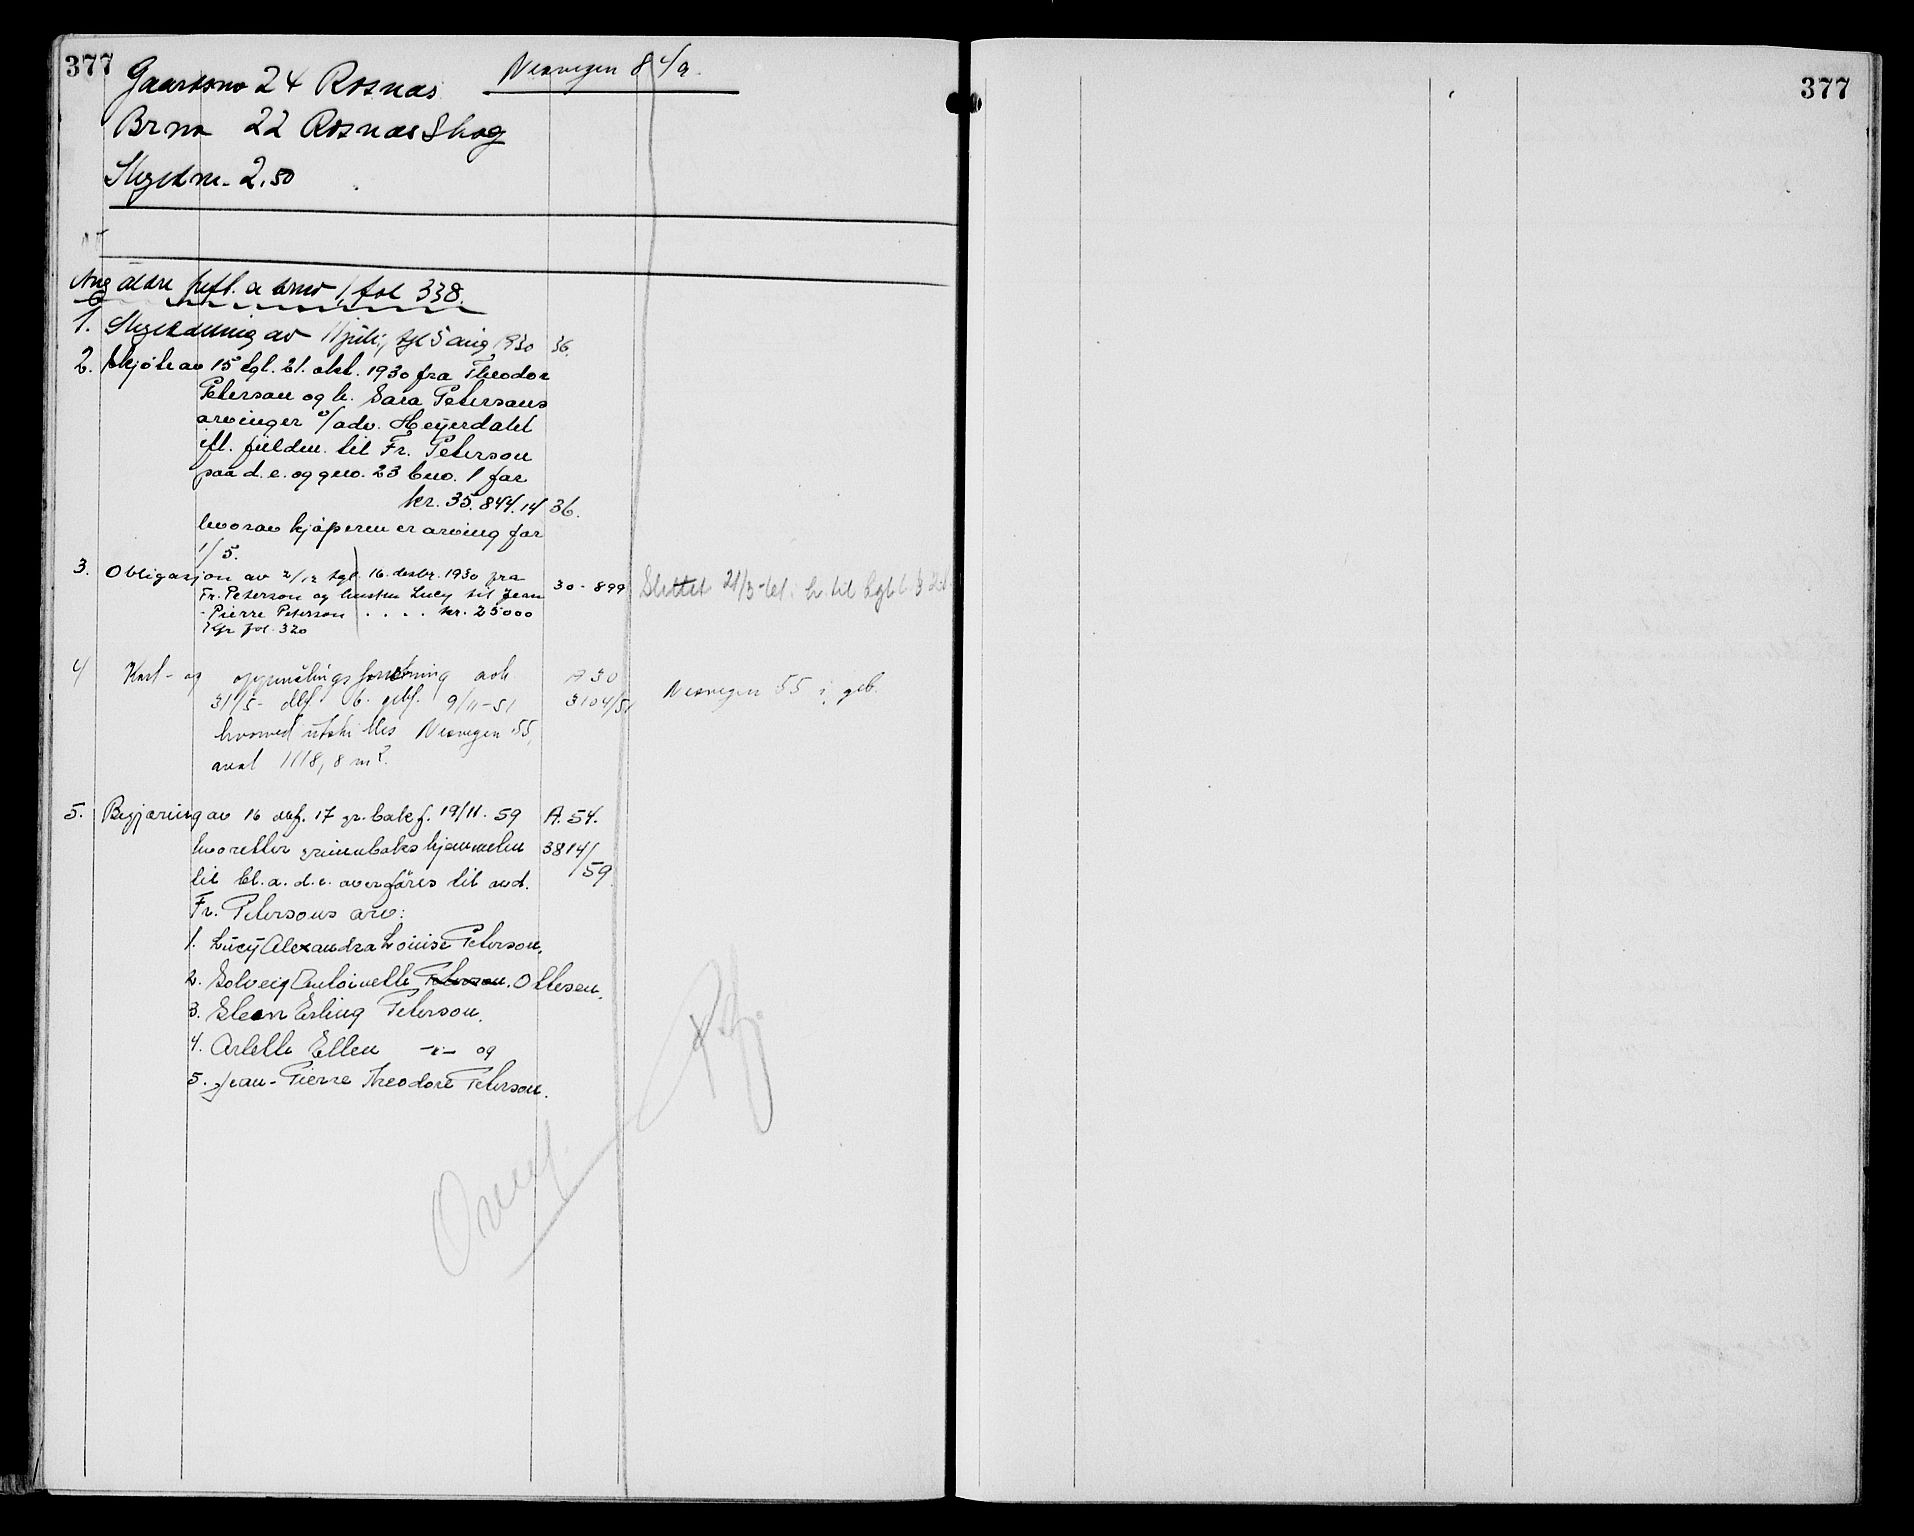 377
Gaardsno 24 Rosnæs
Nesvegen 8 4/9.
Brno 22 Rosnæs Skog
Skyldm. 2.50
Ang ældre heft. se brno 1, fol 338.
1. Skylddeling av 11 juli, tgl 5 aug 1930 36.
2. Skjøte av 15 tgl. 21. okt. 1930 fra Theodor
Peterson og h. Sara Petersons
arvinger v/adv. Heyerdahl
ifl. fuldm. til Fr. Peterson
paa d.e. og gno. 23 bno. 1 for
kr. 35.844.14 36.
hvorav kjøperen er arving for
1/5.
3. Obligasjon av 2/12 tgl. 16. desbr. 1930 fra 30-899
Fr. Peterson og hustru Lucy til Jean
-Pierre Peterson . . . . kr. 25000
Kfr fol. 320
Slettet 21/3-61. h. til tgl l. §
4 Kart- og oppmålingsforretning avh A 30
31/5- dbf. 6. gbf. 9/11-51 3104/51
Nesvegen 55 i gb.
hvorved utskilles Nesvegen 55,
areal 1118,8 m².
5. Begjæring av 16 dbf. 17 gr.bok f. 19/11. 59 A. 54.
hvoretter grunnboks hjemmelen 3814/
59.
til bl.a. d.e. overføres til avd.
Fr. Petersons arv:
1. Lucy Alexandra Louise Peterson,
2. Solveig Antoinette Peterson. Ottesen,
3. Glenn Erling Peterson,
4. Arlette Ellen -"- og
5. Jean-Pierre Theodore Peterson.
377